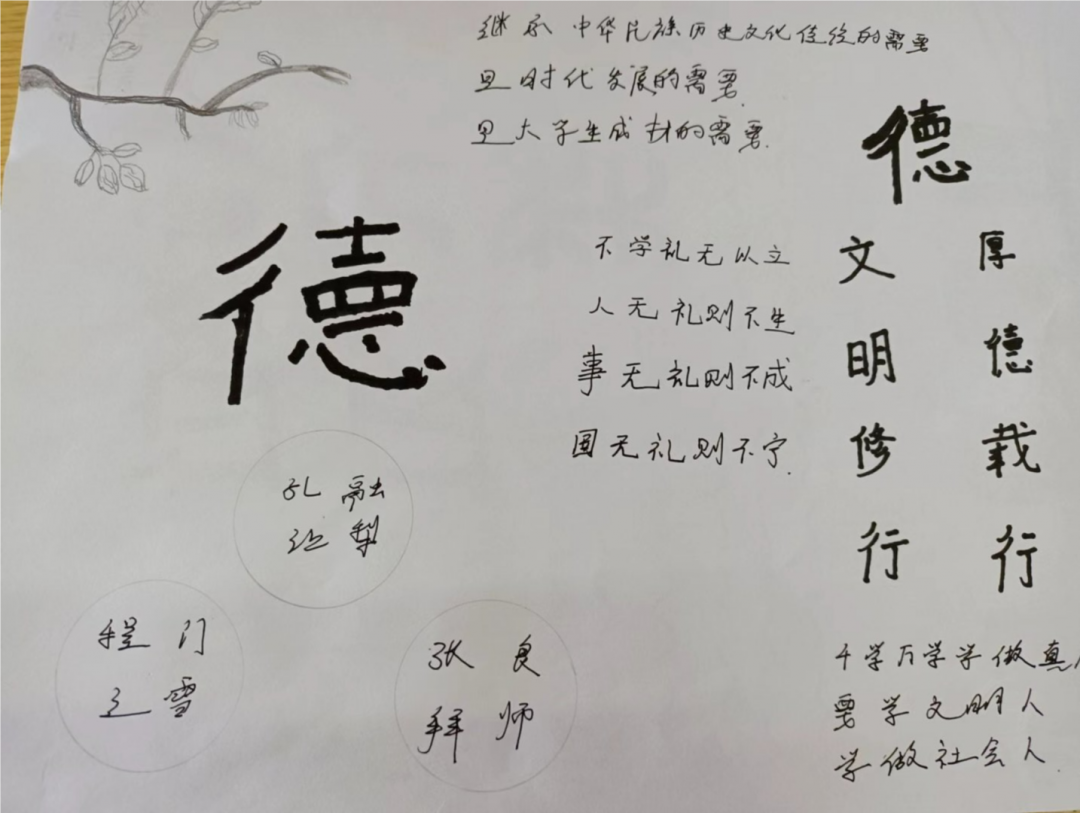 继承中华民族历史文化传统的需要
是时代发展的需要
是大学生成材的需要
德
德
不学礼无以立
人无礼则不生
事无礼则不成
国无礼则不宁
厚德载行
文明修行
孔融
让梨
程门
立雪
张良
拜师
千学万学学做真人
要学文明人
学做社会人